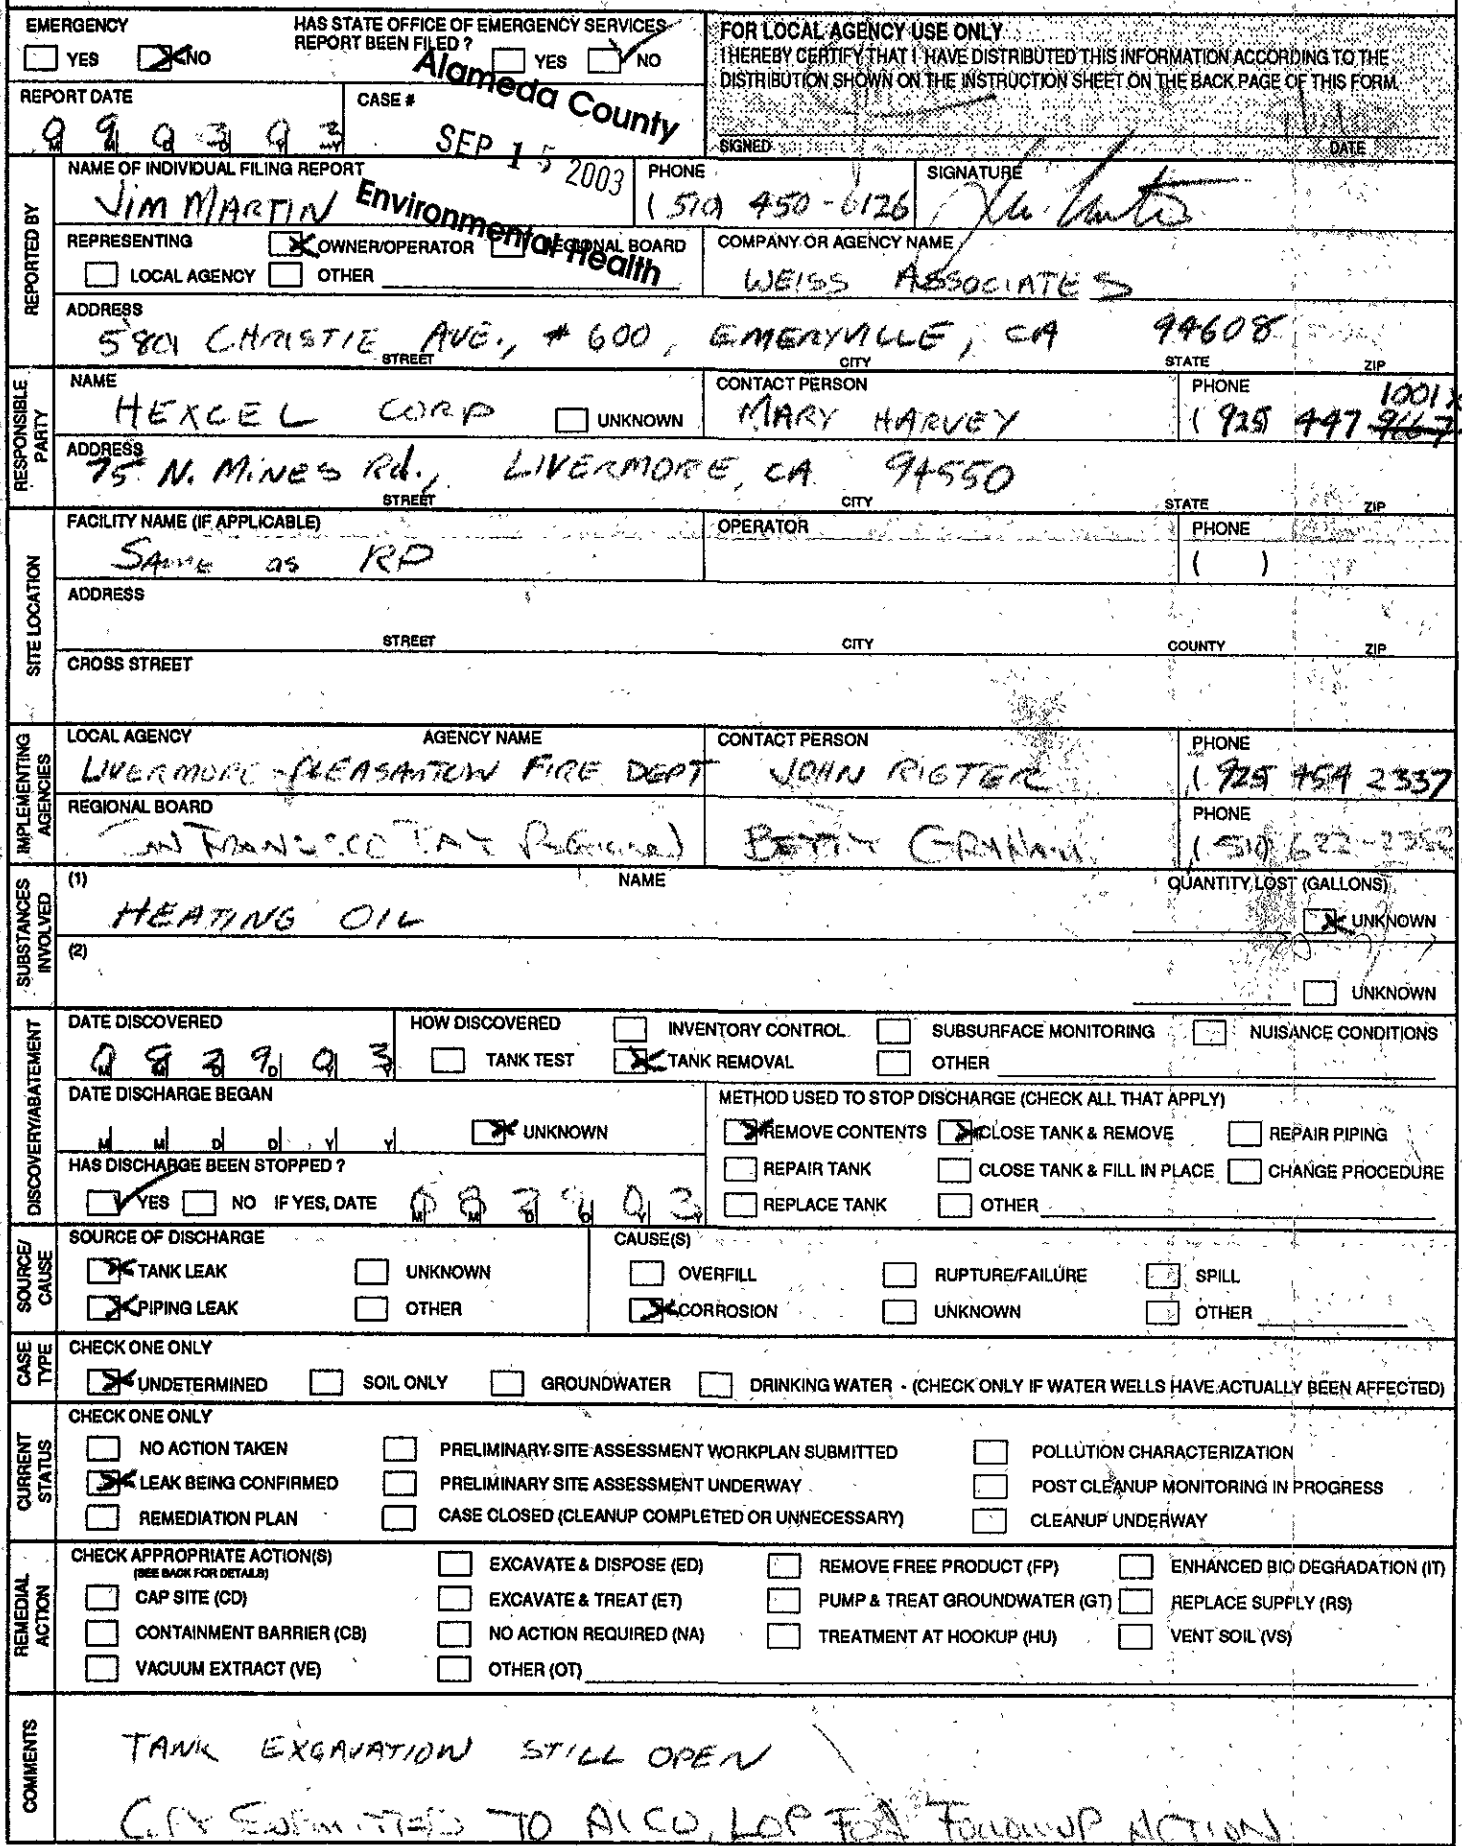 EMERGENCY
YES NO
HAS STATE OFFICE OF EMERGENCY SERVICES
REPORT BEEN FILED ? YES NO
FOR LOCAL AGENCY USE ONLY
I HEREBY CERTIFY THAT I HAVE DISTRIBUTED THIS INFORMATION ACCORDING TO THE
DISTRIBUTION SHOWN ON THE INSTRUCTION SHEET ON THE BACK PAGE OF THIS FORM.
SIGNED DATE
REPORT DATE
0 9 0 3 0 3
CASE #
Alameda County
SEP 15 2003
Environmental Health
REPORTED BY
NAME OF INDIVIDUAL FILING REPORT
JIM MARTIN
PHONE
(510) 450-6126
SIGNATURE
REPRESENTING OWNER/OPERATOR REGIONAL BOARD
LOCAL AGENCY OTHER
COMPANY OR AGENCY NAME
WEISS ASSOCIATES
ADDRESS
5801 CHRISTIE AVE., # 600, EMERYVILLE, CA 94608
STREET CITY STATE ZIP
RESPONSIBLE PARTY
NAME
HEXCEL CORP UNKNOWN
CONTACT PERSON
MARY HARVEY
PHONE
(925) 447 1001 x
ADDRESS
75 N. MINES Rd., LIVERMORE, CA 94550
STREET CITY STATE ZIP
SITE LOCATION
FACILITY NAME (IF APPLICABLE)
SAME as RP
OPERATOR
PHONE
( )
ADDRESS
STREET CITY COUNTY ZIP
CROSS STREET
IMPLEMENTING AGENCIES
LOCAL AGENCY AGENCY NAME
LIVERMORE-PLEASANTON FIRE DEPT
CONTACT PERSON
JOHN RIGTER
PHONE
(925 454 2337
REGIONAL BOARD
SAN FRANCISCO BAY REGIONAL
BETTY GRAHAM
PHONE
(510) 622-2352
SUBSTANCES INVOLVED
(1) NAME QUANTITY LOST (GALLONS)
HEATING OIL UNKNOWN
(2)
UNKNOWN
DISCOVERY/ABATEMENT
DATE DISCOVERED
0 8 2 9 0 3
M M D D Y Y
HOW DISCOVERED INVENTORY CONTROL SUBSURFACE MONITORING NUISANCE CONDITIONS
TANK TEST TANK REMOVAL OTHER
DATE DISCHARGE BEGAN
M M D D Y Y UNKNOWN
METHOD USED TO STOP DISCHARGE (CHECK ALL THAT APPLY)
REMOVE CONTENTS CLOSE TANK & REMOVE REPAIR PIPING
REPAIR TANK CLOSE TANK & FILL IN PLACE CHANGE PROCEDURE
REPLACE TANK OTHER
HAS DISCHARGE BEEN STOPPED ?
YES NO IF YES, DATE 0 8 2 9 0 3
SOURCE/ CAUSE
SOURCE OF DISCHARGE
TANK LEAK UNKNOWN
PIPING LEAK OTHER
CAUSE(S)
OVERFILL RUPTURE/FAILURE SPILL
CORROSION UNKNOWN OTHER
CASE TYPE
CHECK ONE ONLY
UNDETERMINED SOIL ONLY GROUNDWATER DRINKING WATER - (CHECK ONLY IF WATER WELLS HAVE ACTUALLY BEEN AFFECTED)
CURRENT STATUS
CHECK ONE ONLY
NO ACTION TAKEN PRELIMINARY SITE ASSESSMENT WORKPLAN SUBMITTED POLLUTION CHARACTERIZATION
LEAK BEING CONFIRMED PRELIMINARY SITE ASSESSMENT UNDERWAY POST CLEANUP MONITORING IN PROGRESS
REMEDIATION PLAN CASE CLOSED (CLEANUP COMPLETED OR UNNECESSARY) CLEANUP UNDERWAY
REMEDIAL ACTION
CHECK APPROPRIATE ACTION(S)
(SEE BACK FOR DETAILS)
EXCAVATE & DISPOSE (ED) REMOVE FREE PRODUCT (FP) ENHANCED BIO DEGRADATION (IT)
CAP SITE (CD) EXCAVATE & TREAT (ET) PUMP & TREAT GROUNDWATER (GT) REPLACE SUPPLY (RS)
CONTAINMENT BARRIER (CB) NO ACTION REQUIRED (NA) TREATMENT AT HOOKUP (HU) VENT SOIL (VS)
VACUUM EXTRACT (VE) OTHER (OT)
COMMENTS
TANK EXCAVATION STILL OPEN
COPY SUBMITTED TO ALCO, LOP FOR FOLLOWUP ACTION